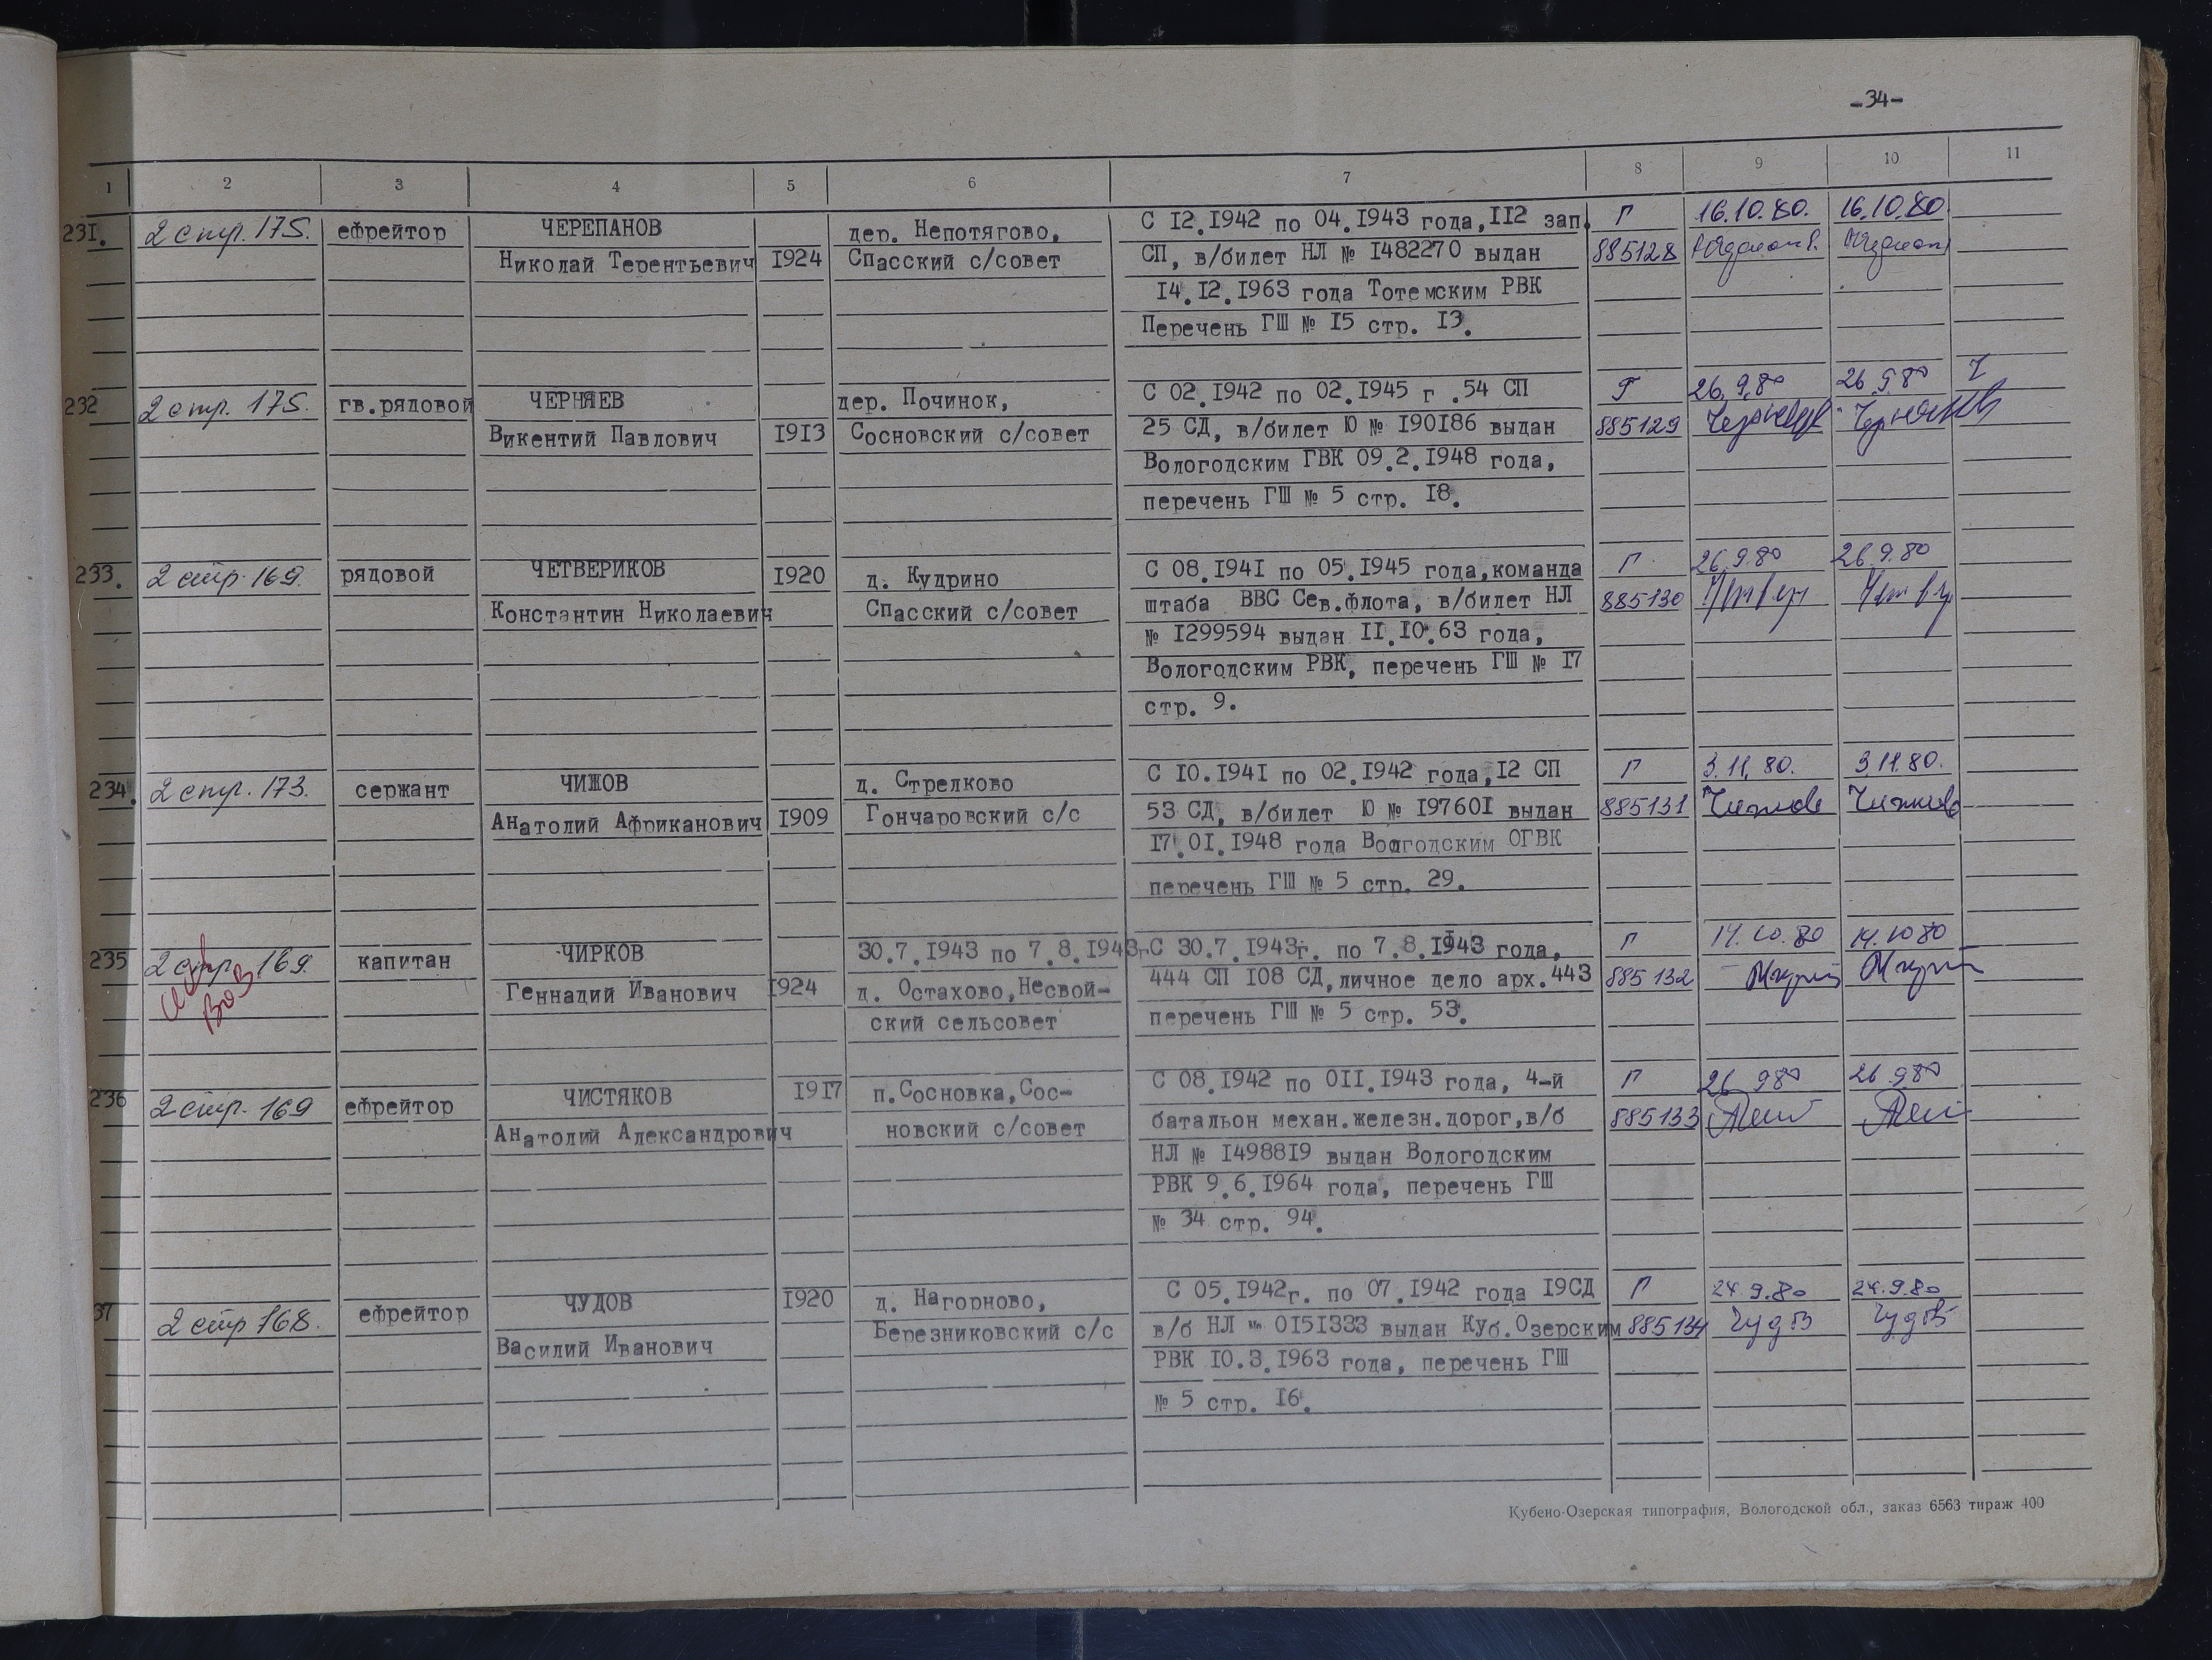 -34-
1 2 3 4 5 6 7 8 9 10 11
231. 2 стр. 175. ефрейтор ЧЕРЕПАНОВ дер. Непотягово, С I2.I942 по 04.I943 года,II2 зап. Г 16.10.80. 16.10.80.
Николай Терентьевич I924 Спасский с/совет СП, в/билет НЛ № I482270 выдан 885128
I4.I2.I963 года Тотемским РВК
Перечень ГШ № I5 стр. I3.
232 2 стр. 175. гв.рядовой ЧЕРНЯЕВ дер. Починок, С 02.I942 по 02.I945 г .54 СП Г 26.9.80 26.9.80
Викентий Павлович I9I3 Сосновский с/совет 25 СД, в/билет Ю № I90I86 выдан 885129
Вологодским ГВК 09.2.I948 года,
перечень ГШ № 5 стр. I8.
233. 2 стр. 169. рядовой ЧЕТВЕРИКОВ I920 д. Кудрино С 08.I94I по 05.I945 года,команда Г 26.9.80 26.9.80
Константин Николаевич Спасский с/совет штаба ВВС Сев.флота, в/билет НЛ 885130
№ I299594 выдан II.I0.63 года,
Вологодским РВК, перечень ГШ № I7
стр. 9.
234. 2 стр. 173. сержант ЧИЖОВ д. Стрелково С I0.I94I по 02.I942 года,I2 СП Г 3.11.80. 3.11.80.
Анатолий Африканович I909 Гончаровский с/с 53 СД, в/билет Ю № I9760I выдан 885131 Чижов Чижов
I7.0I.I948 года Вологодским ОГВК
перечень ГШ № 5 стр. 29.
235 2 стр. 169. капитан ЧИРКОВ 30.7.I943 по 7.8.I943г. С 30.7.I943г. по 7.8.I943 года, Г 14.10.80 14.10.80
ВОВ Геннадий Иванович I924 д. Остахово,Несвой- 444 СП I08 СД,личное дело арх.443 885132
ский сельсовет перечень ГШ № 5 стр. 53.
236 2 стр. 169 ефрейтор ЧИСТЯКОВ I9I7 п.Сосновка,Сос- С 08.I942 по 0II.I943 года, 4-й Г 26.9.80 26.9.80
Анатолий Александрович новский с/совет батальон механ.железн.дорог,в/б 885133
НЛ № I4988I9 выдан Вологодским
РВК 9.6.I964 года, перечень ГШ
№ 34 стр. 94.
37 2 стр. 168. ефрейтор ЧУДОВ I920 д. Нагорново, С 05.I942г. по 07.I942 года I9СД Г 24.9.80 24.9.80
Василий Иванович Березниковский с/с в/б НЛ № 0I5I333 выдан Куб.Озерским 885134 Чудов Чудов
РВК I0.3.I963 года, перечень ГШ
№ 5 стр. I6.
Кубено-Озерская типография, Вологодской обл., заказ 6563 тираж 400